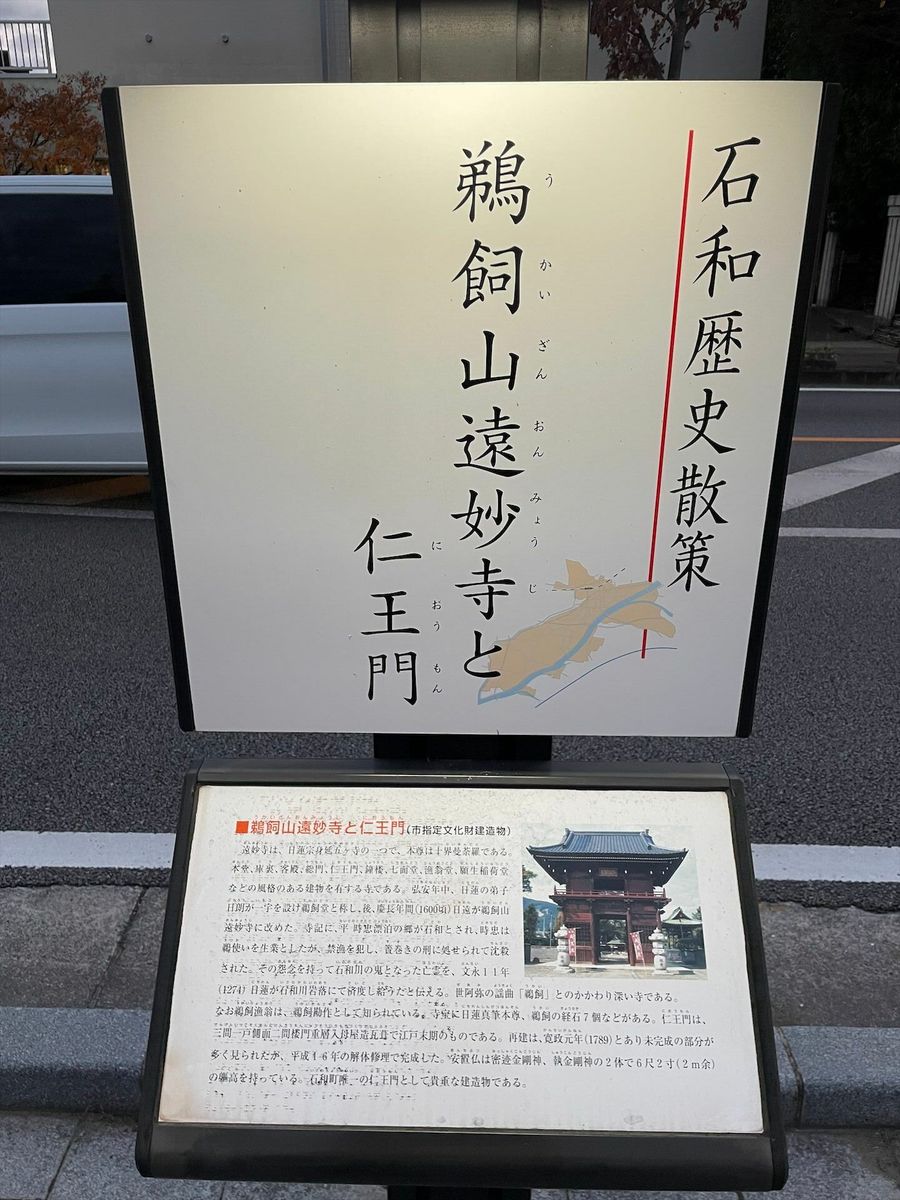 石和歴史散策
鵜飼山遠妙寺と
うかいざんおんみょうじ
仁王門
におうもん
■鵜飼山遠妙寺と仁王門(市指定文化財建造物)
遠妙寺は、日蓮宗身延五ヶ寺の一つで、本尊は十界曼荼羅である。
本堂、庫裏、客殿、総門、仁王門、鐘楼、七面堂、漁翁堂、願生稲荷堂
などの風格のある建物を有する寺である。弘安年中、日蓮の弟子
日朗が一宇を設け鵜飼堂と称し、後、慶長年間(1600頃)日遠が鵜飼山
遠妙寺に改めた。寺記に、平時忠漂泊の郷が石和とされ、時忠は
鵜使いを生業としたが、禁漁を犯し、簀巻きの刑に処せられて沈殺
された。その怨念を持って石和川の鬼となった亡霊を、文永11年
(1274)日蓮が石和川岩落にて済度し給うたと伝える。世阿弥の謡曲「鵜飼」とのかかわり深い寺である。
なお鵜飼漁翁は、鵜飼勘作として知られている。寺宝に日蓮真筆本尊、鵜飼の経石7個などがある。仁王門は、
三間一戸側面二間楼門重層入母屋造瓦葺で江戸末期のものである。再建は、寛政元年(1789)とあり未完成の部分が
多く見られたが、平成4-6年の解体修理で完成した。安置仏は密迹金剛神、執金剛神の2体で6尺2寸(2m余)
の像高を持っている。石和町唯一の仁王門として貴重な建造物である。